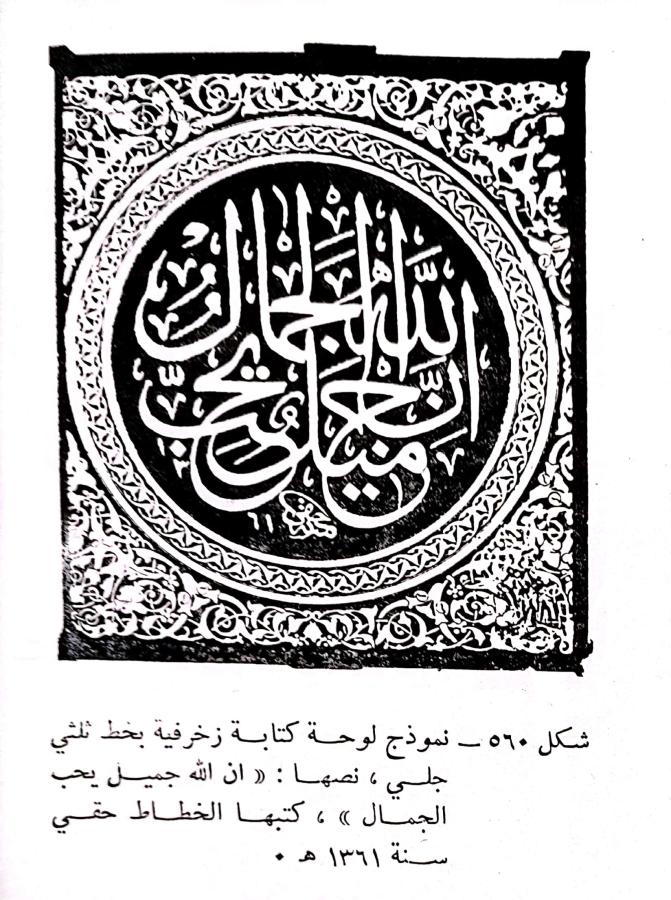 ان الله جميل يحب الجمال
٦١
شكل ٥٦٠ ــ نموذج لوحة كتابة زخرفية بخط ثلثي
جلي ، نصها : « ان الله جميل يحب
الجمال » ، كتبها الخطاط حقي
سنة ١٣٦١ هـ ٠